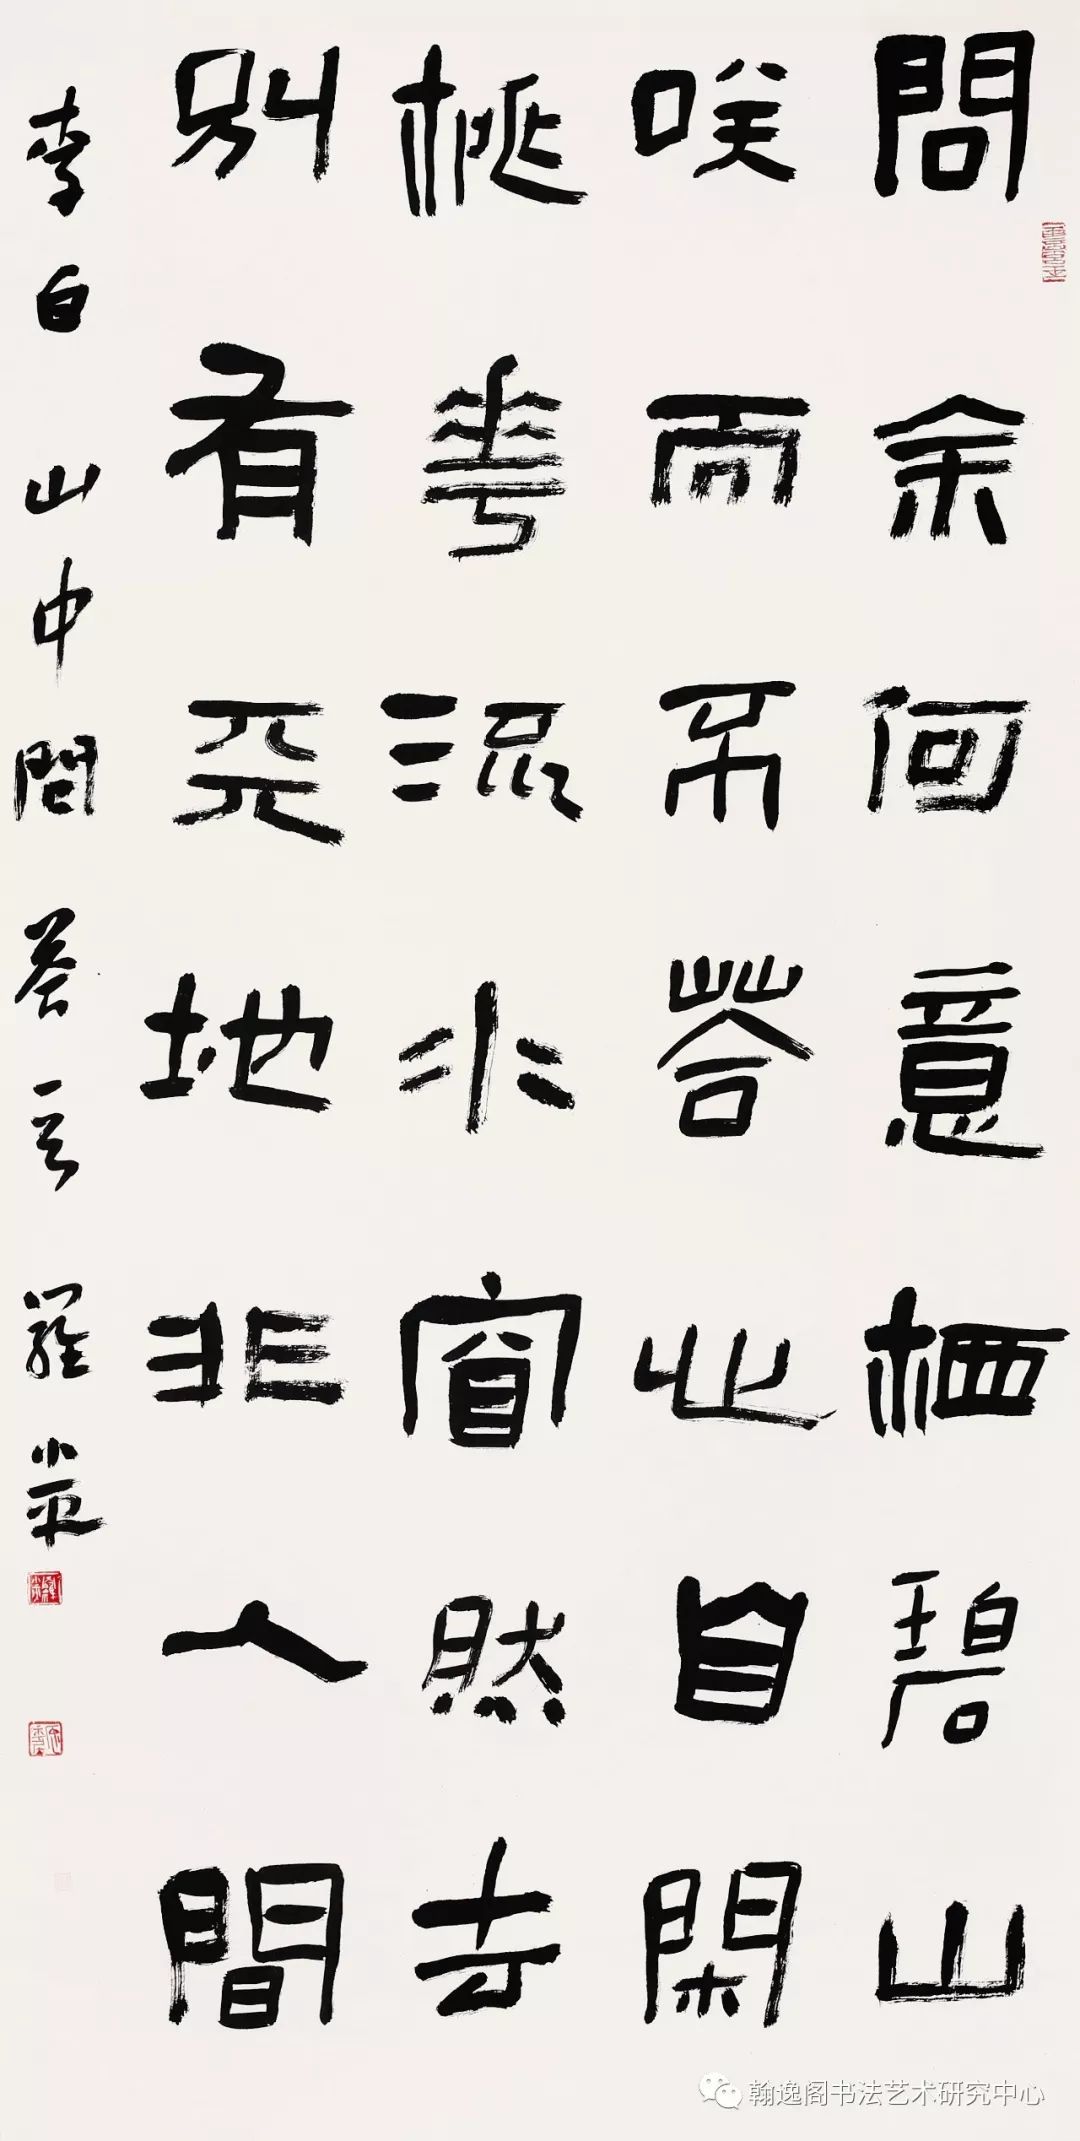 問余何意栖碧山
咲而不荅心自閑
桃華流水窅然去
別有天地非人間
李白山中問荅
翰逸阁书法艺术研究中心